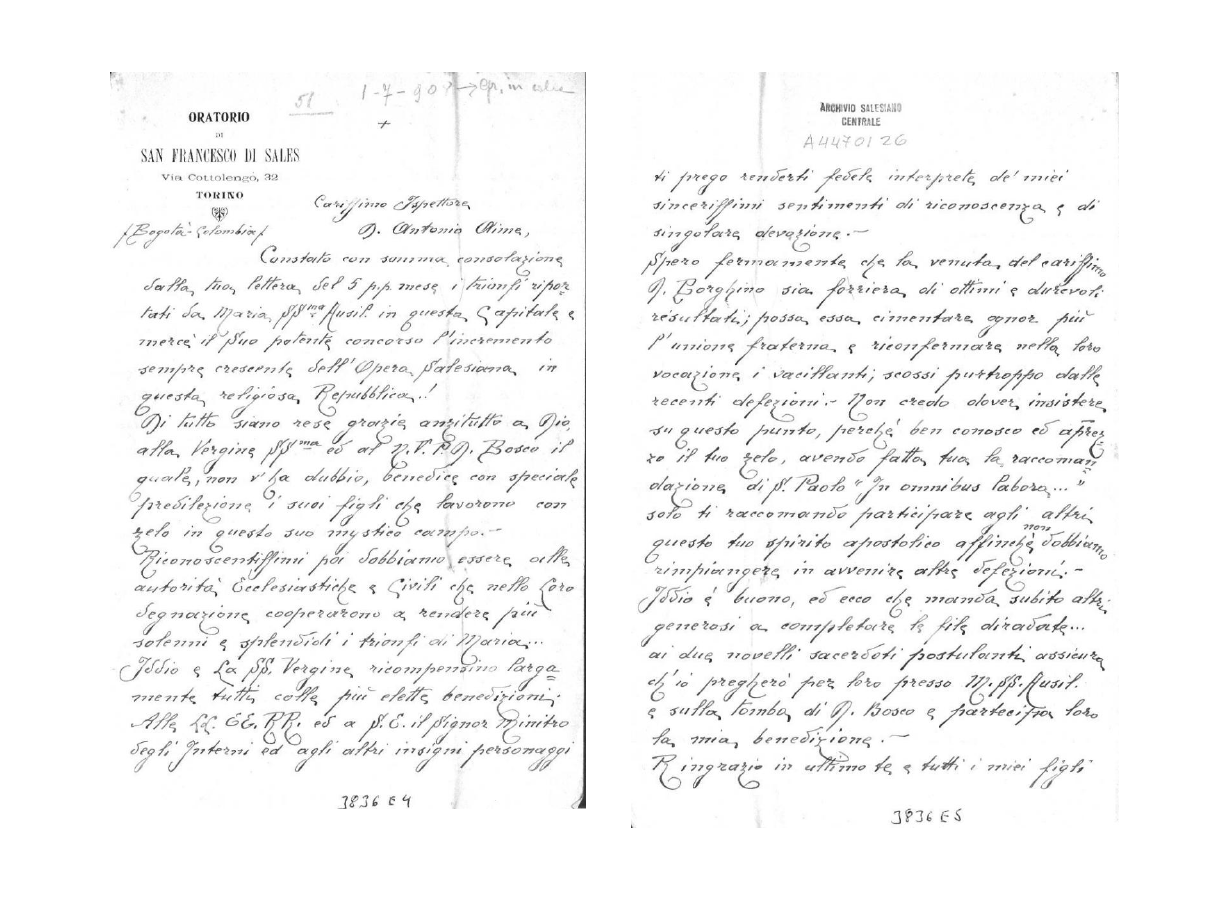 51
1-7-907
ORATORIO
DI
SAN FRANCESCO DI SALES
Via Cottolengo, 32
TORINO
Carissimo Ispettore
(Bogotà-Colombia)
D. Antonio Aime,
Constato con somma consolazione
dalla tua lettera del 5 p.p. mese i trionfi ripor-
tati da Maria SSma Ausil. in questa Capitale e
mercè il Suo potente concorso l'incremento
sempre crescente dell'Opera Salesiana in
questa religiosa Repubblica!
Di tutto siano rese grazie anzitutto a Dio,
alla Vergine SSma ed al N. V. P. D. Bosco il
quale, non v'ha dubbio, benedice con speciale
predilezione i suoi figli che lavorono con
zelo in questo suo mystico campo.-
Riconoscentissimi poi dobbiamo essere alle
autorità Ecclesiastiche e Civili che nella Loro
degnazione cooperarono a rendere più
solenni e splendidi i trionfi di Maria...
Iddio e La SS. Vergine ricompensino larga-
mente tutti colle più elette benedizioni;
Alle LL. EE. RR. ed a S. E. il Signor Minitro
degli Interni ed agli altri insigni personaggi
3836 E4
ARCHIVIO SALESIANO
CENTRALE
A4470126
ti prego renderti fedele interprete de' miei
sincerissimi sentimenti di riconoscenza e di
singolare devozione.-
Spero fermamente che la venuta del carissimo
D. Borghino sia forriera di ottimi e durevoli
risultati; possa essa cimentare ognor più
l'unione fraterna e riconfermare nella loro
vocazione i vacillanti, scossi purtroppo dalle
recenti defezioni.- Non credo dover insistere
su questo punto, perchè ben conosco ed aprez-
zo il tuo zelo, avendo fatta tua la raccoman-
dazione di S. Paolo "In omnibus labora..."
solo ti raccomando participare agli altri
questo tuo spirito apostolico affinchè non dobbiamo
rimpiangere in avvenire altre defezioni.-
Iddio è buono, ed ecco che manda subito altri
generosi a completare le file diradate...
ai due novelli sacerdoti postulanti assicura
ch'io pregherò per loro presso M. SS. Ausil.
e sulla tomba di D. Bosco e partecipa loro
la mia benedizione.-
Ringrazio in ultimo te e tutti i miei figli
3836 E5